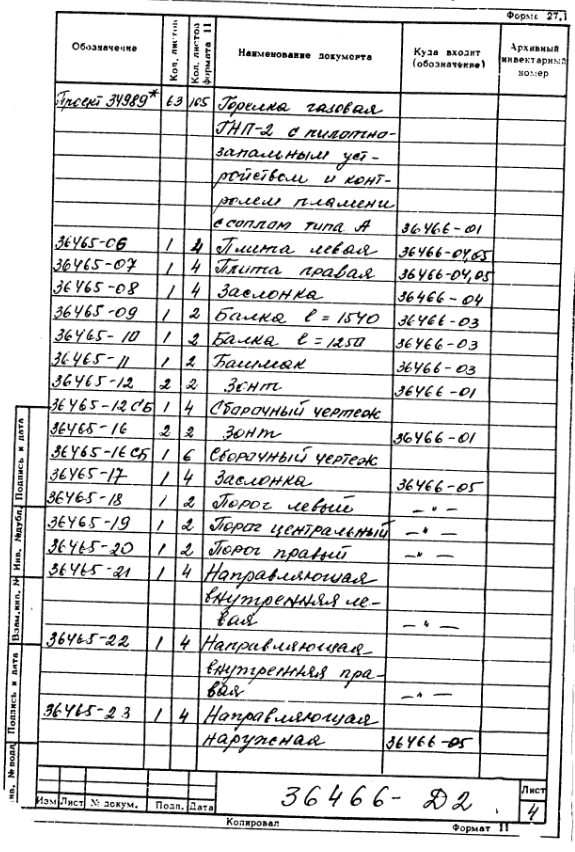 Форма 27.1
Обозначение Кол. листов Кол. листов формата 11 Наименование документа Куда входит (обозначение) Архивный инвентарный номер
Проект 34989* 63 165 Горелка газовая
ГНП-2 с пилотно-
запальным уст-
ройством и конт-
ролем пламени
с соплом типа А 36466-01
36465-06 1 4 Плита левая 36466-04,05
36465-07 1 4 Плита правая 36466-04,05
36465-08 1 4 Заслонка 36466-04
36465-09 1 2 Балка l=1540 36466-03
36465-10 1 2 Балка l=1250 36466-03
36465-11 1 2 Башмак 36466-03
36465-12 2 2 Зонт 36466-01
36465-12СБ 1 4 Сборочный чертеж
36465-16 2 2 Зонт 36466-01
36465-16СБ 1 6 Сборочный чертеж
36465-17 1 4 Заслонка 36466-05
36465-18 1 2 Порог левый —"—
36465-19 1 2 Порог центральный —"—
36465-20 1 2 Порог правый —"—
36465-21 1 4 Направляющая
внутренняя ле-
вая —"—
36465-22 1 4 Направляющая
внутренняя пра-
вая —"—
36465-23 1 4 Направляющая
наружная 36466-05
Подпись и дата
Инв. №дубл.
Взам. инв. №
Подпись и дата
Инв. №подл
Изм Лист № докум. Подп. Дата
36466-Д2
Лист
4
Копировал Формат 11